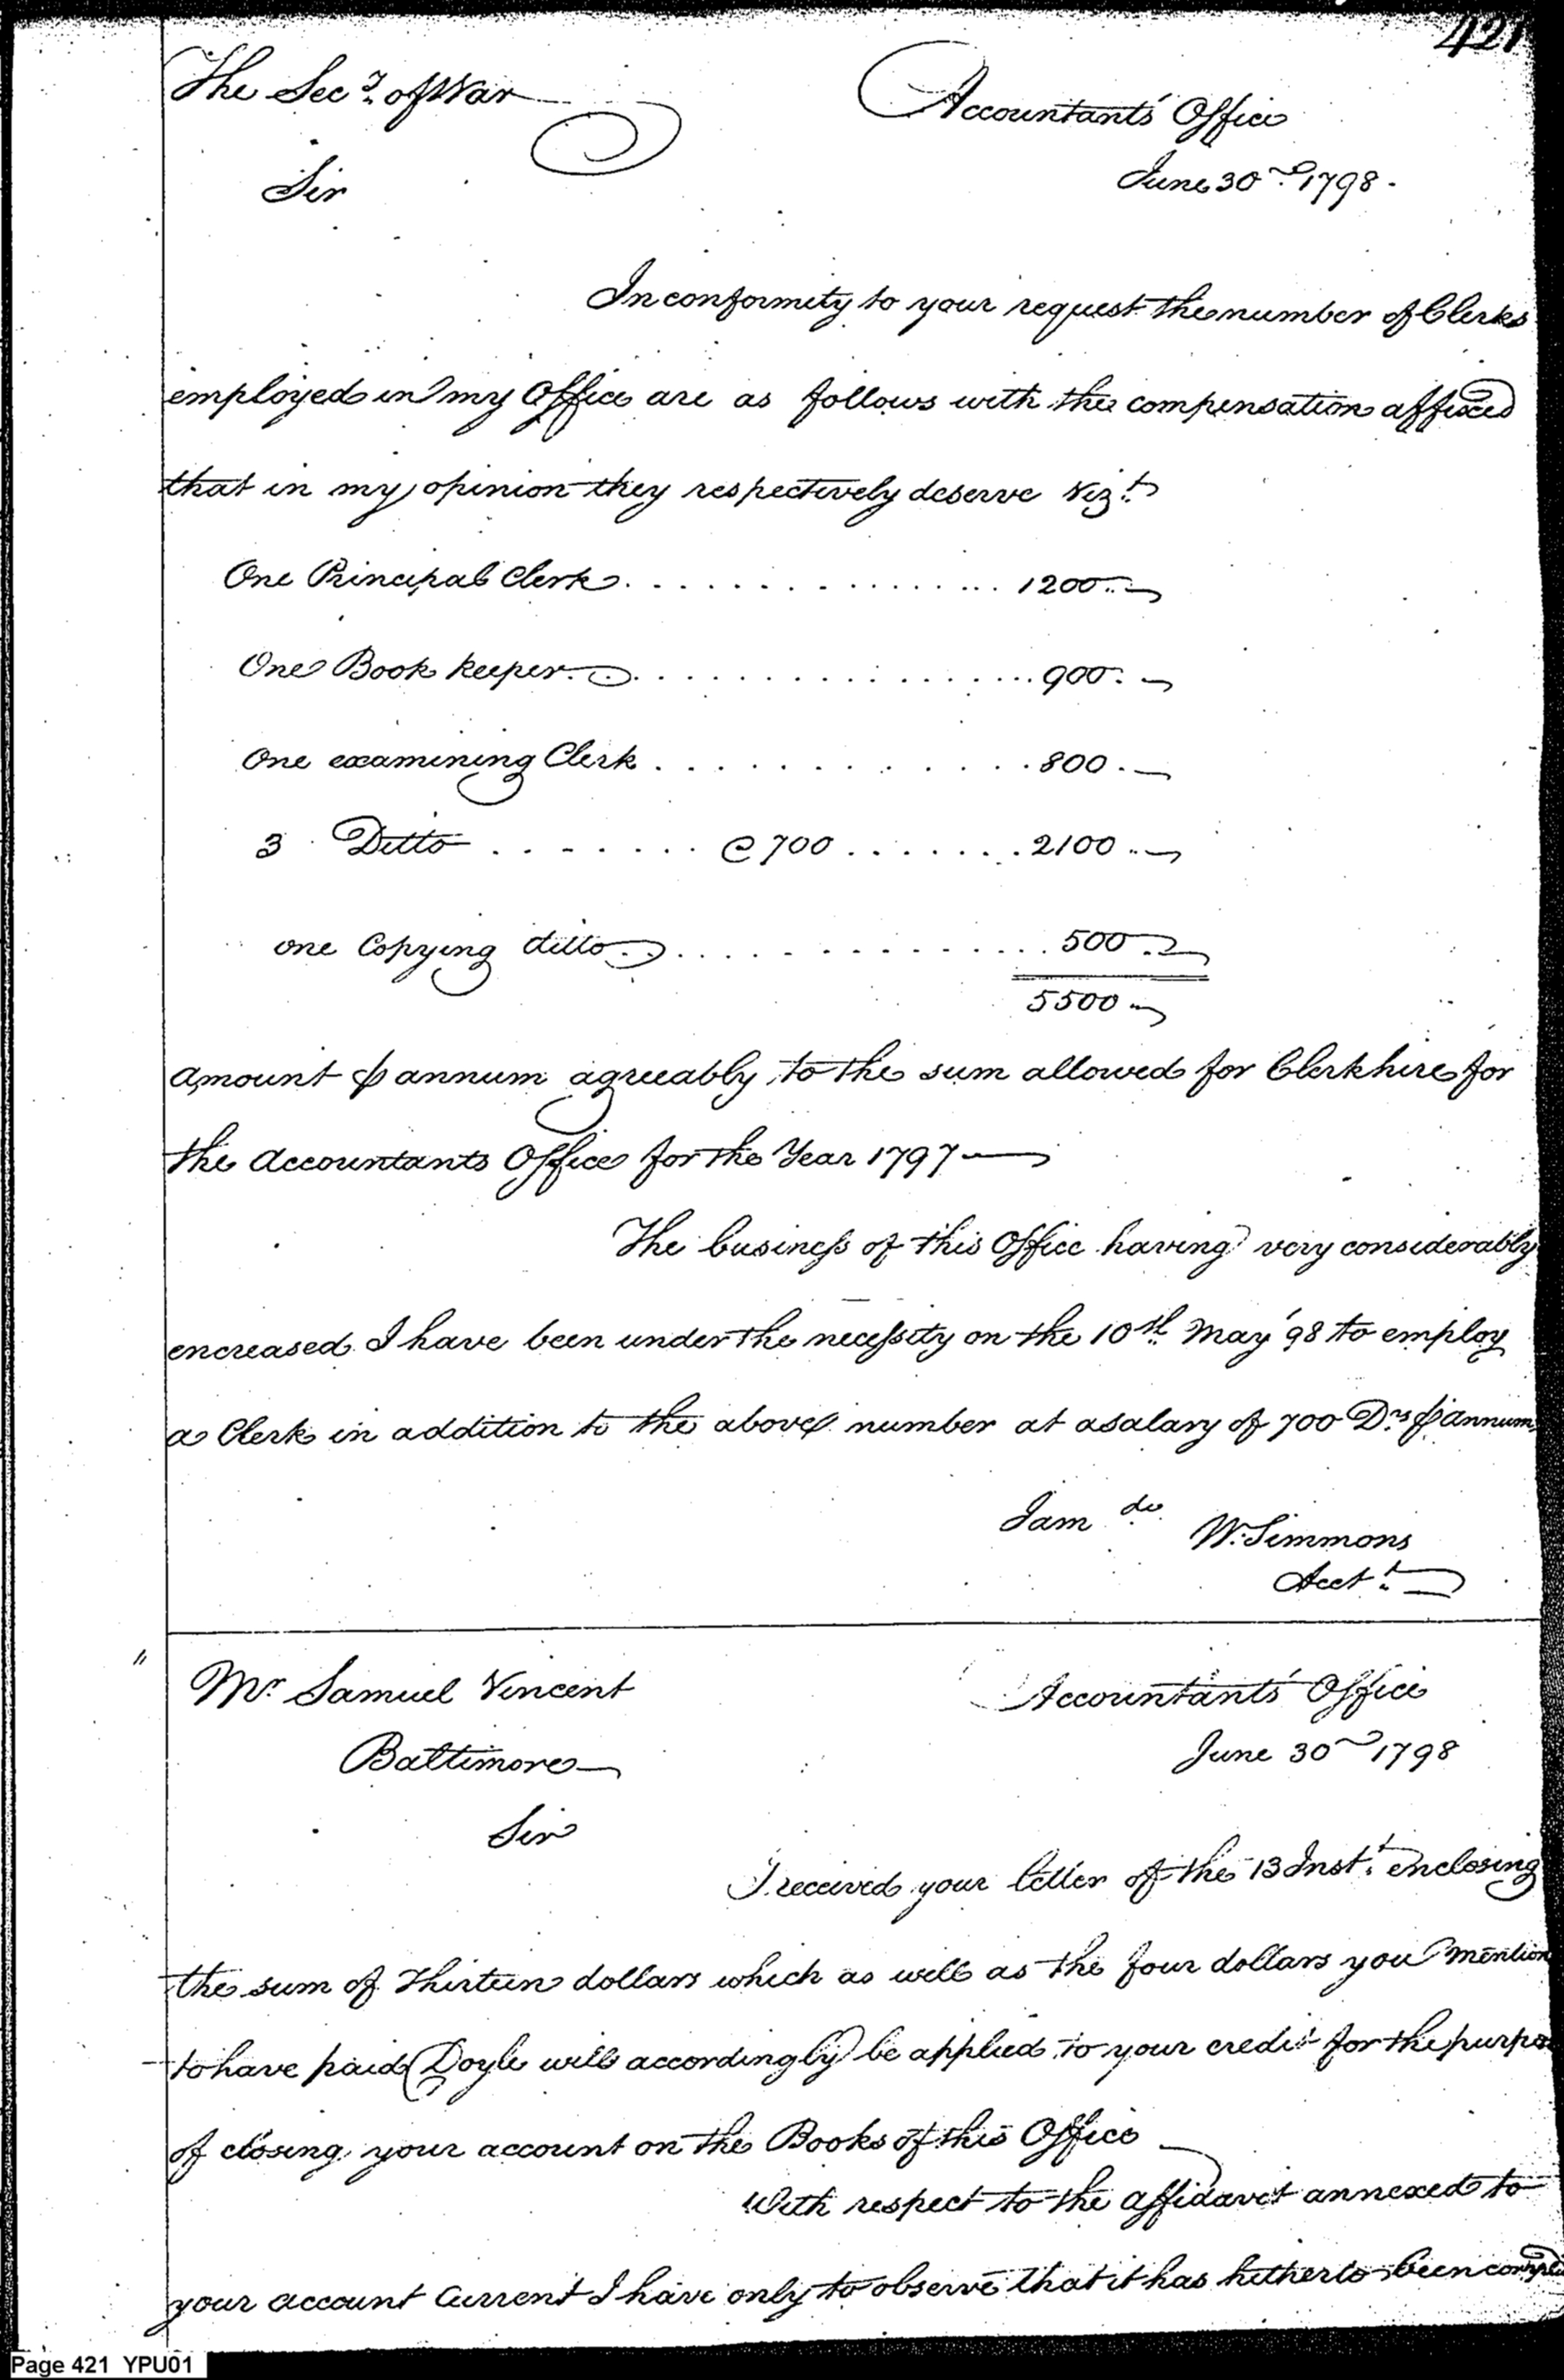 421
The Secy. of War
Accountants' Office
Sir
June 30th. 1798.
In conformity to your request the number of Clerks
employed in my Office are as follows with the compensation affixed
that in my opinion they respectively deserve Vizt.
One Principal Clerk . . . . . . . . . . . . . . . 1200..
One Book keeper. . . . . . . . . . . . . . . . 900.
One examining Clerk . . . . . . . . . . . . . 800.
3 Ditto . . . . . . . . @ 700 . . . . . . . 2100..
one Copying ditto . . . . . . . . . . . . . . 500.
5500..
amount ⅌ annum agreeably to the sum allowed for Clerk hire for
the Accountants Office for the Year 1797
The business of this Office having very considerably
encreased I have been under the necessity on the 10th. May '98 to employ
a Clerk in addition to the above number at a salary of 700 Drs ⅌ annum
I am &c.
W. Simmons
Acct.
" Mr. Samuel Vincent
Accountants' Office
Baltimore
June 30 1798
Sir
I received your letter of the 13 Inst. enclosing
the sum of Thirteen dollars which as well as the four dollars you mention
to have paid Doyle will accordingly be applied to your credit for the purpo
of closing your account on the Books of this Office
With respect to the affidavit annexed to
your account Current I have only to observe that it has hitherto been
Page 421 YPU01